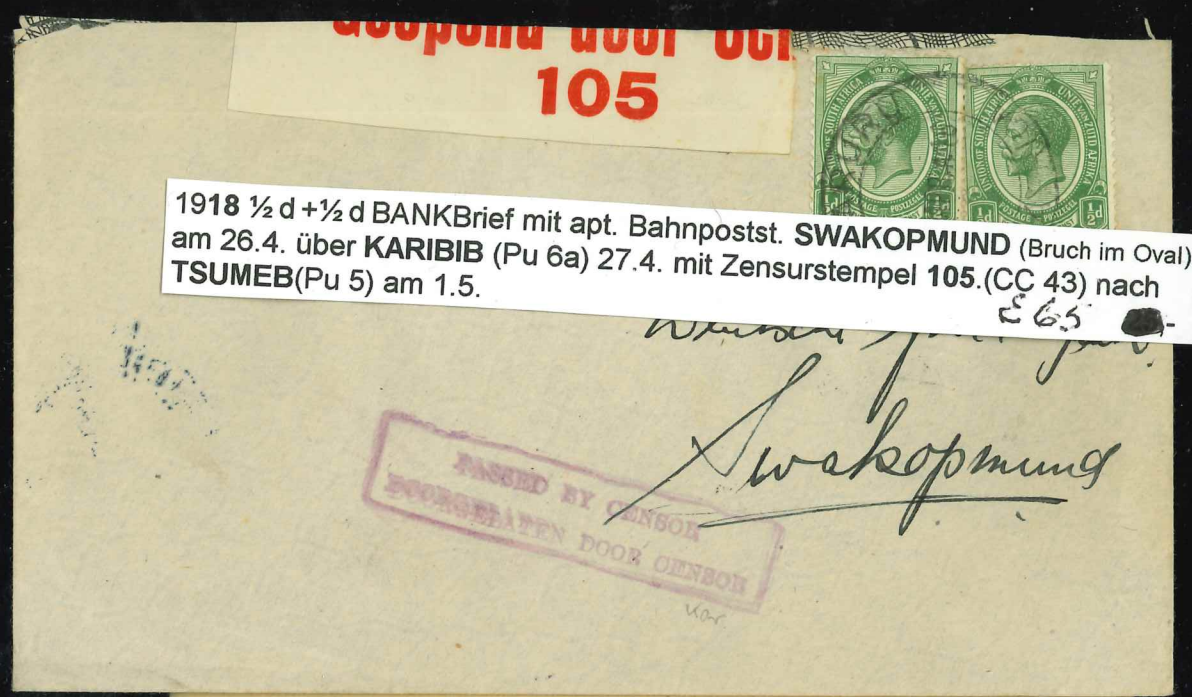 Geopend door
105
UNION OF SOUTH AFRICA UNIE VAN ZUID AFRIKA
½d POSTAGE POSTZEGEL ½d
1918 ½ d +½ d BANKBrief mit apt. Bahnpostst. SWAKOPMUND (Bruch im Oval)
am 26.4. über KARIBIB (Pu 6a) 27.4. mit Zensurstempel 105.(CC 43) nach
TSUMEB(Pu 5) am 1.5.
£ 65
Swakopmund
PASSED BY CENSOR
DOORGELATEN DOOR CENSOR
Kar.